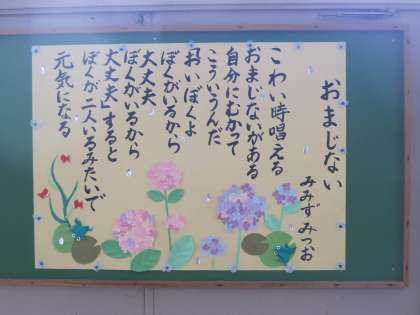 おまじない
みみずみつお
こわい時唱える
おまじないがある
自分にむかって
こういうんだ
おいぼくよ
ぼくがいるから
大丈夫
ぼくがいるから
大丈夫」すると
ぼくが二人いるみたいで
元気になる